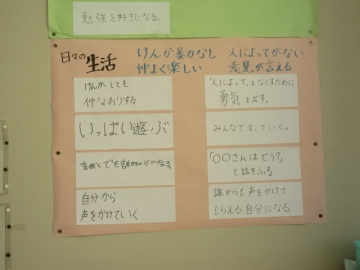 勉強を好きになる
日々の生活
けんか暴力なし 人によってがない
仲よく楽しい 意見が言える
けんかしても
仲なおりする
いっぱい遊ぶ
自分から
声をかけていく
「人によって」をなくすために
勇気を出す。
みんなで
「〇〇さんはどう?」
と話をふる
誰からも声をかけて
もらえる自分になる。